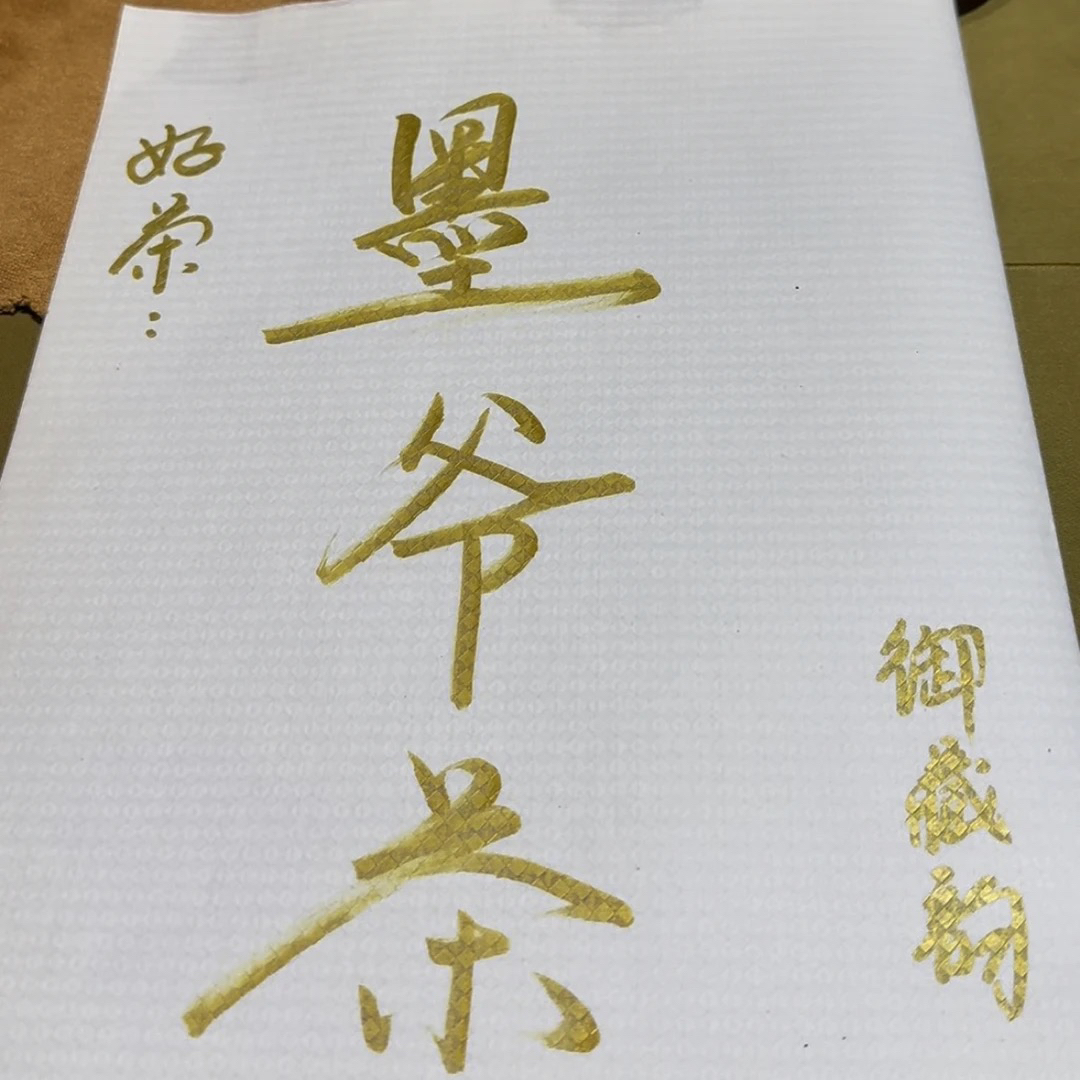 御藏韵
墨爷茶
好茶: